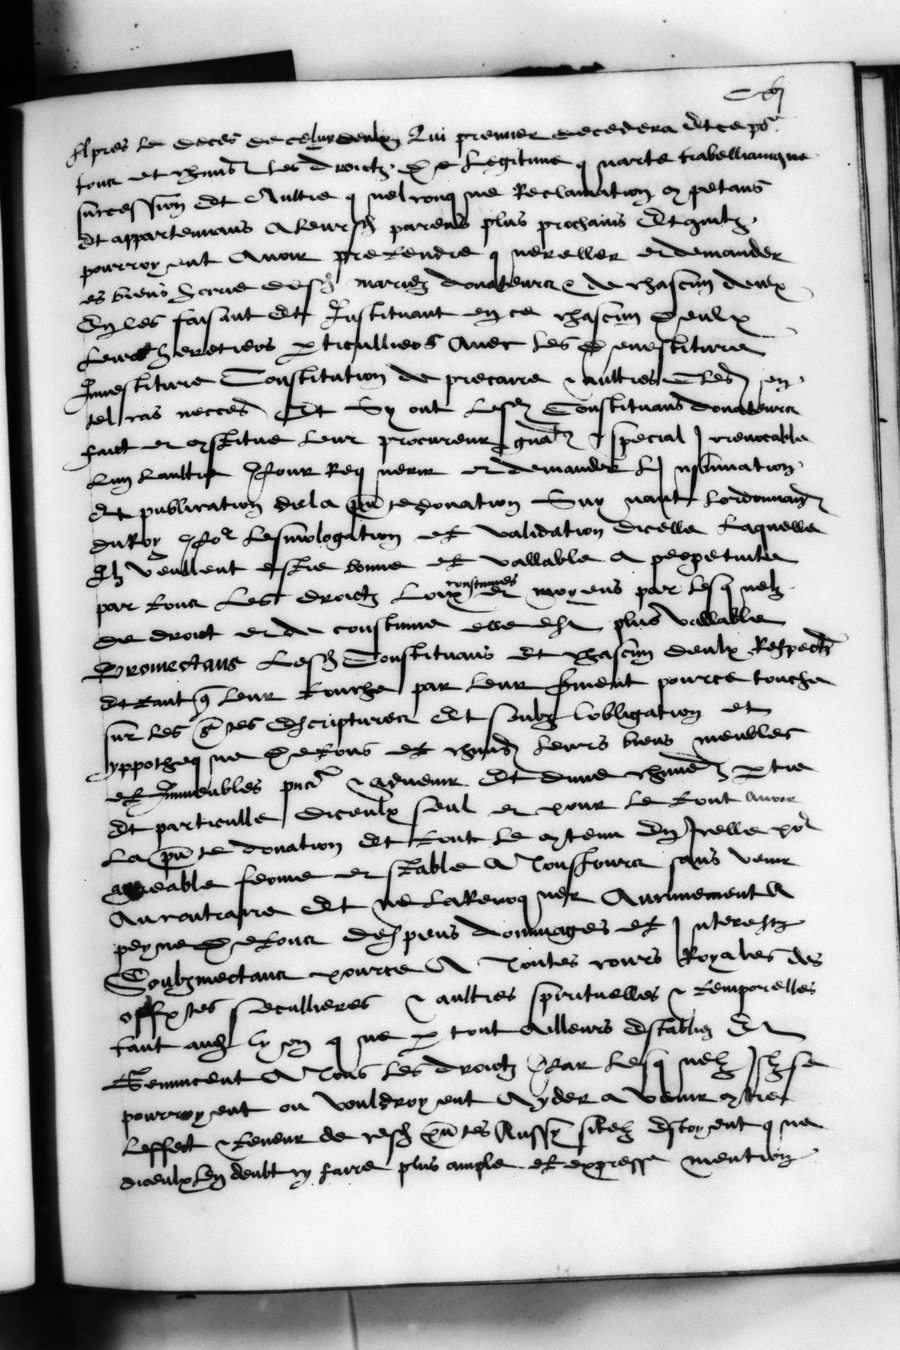 Cvj
Apres le deces de celuy deulx Qui premier decedera Et ce po
tous et chuns les droictz de legitime quarte trabellianique
succession Et Aultre quelconque Reclamation
Et appartenans A leursd parens plus prochains Et quilz
pourroyent Avoir pretendre quereller et demander
es biens desd mariez donateurs & de chascun deulx
En les faisant Et Instituant en ce chascun deulx
Leurs heretiers particulliers Avec les devestiture
Investiture Constitution de precaire & aultres Cles en
tel cas necces Et Sy ont lesd Constituans donateurs
faict et constitue leur procureur gnal & special Irrevocable
Lun laultre pour Requerir et demander Linsinuation
Et publication de la pnte donation Suyvant lordonnance
du Roy pour lesmologation et validation dicelle Laquelle
Ilz veullent estre bonne et vallable a perpetuite
par tous Les droictz Loix coustumes et moyens par lesquelz
de droict et de coustume elle est plus vallable
Promectans Lesd Constituans Et chascun deulx Respect
Et tant que leur touche par leur serment pource touche
sur les stes Escriptures Et soubz lobligation et
yppotheque de tous et chuns leurs biens meubles
et Immeubles pns & advenir Et dune chune partie
Et particulle diceulx seul et pour le tout avoir
La pnte donation Et tout le contenu En Icelle pour
agreable ferme et stable A Tousjours sans venir
Au contraire Et ne La Revoquer Aucunement A
peyne de tous despens dommages et Interestz
Soubzmectans pource A Toutes cours Royales des
seculieres & aultres spirituelles & temporelles
tant aud lyon que par tout Ailleurs establiz Et
Renuncent A Tous Les droictz Par lesquelz Ilz se
pourroyent ou vouldroyent Ayder a venir contre
Leffect & teneur de cesd pntes Aussy silz Estoyent que
diceulx sen deult cy faire plus ample et expresse mention